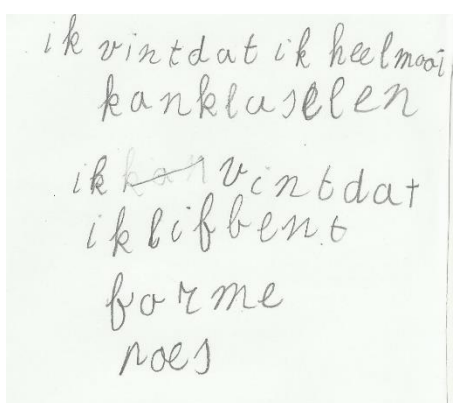 ik vintdat ik heelmooi
kankluselen
ik kan vintdat
ik lifbent
forme
noes